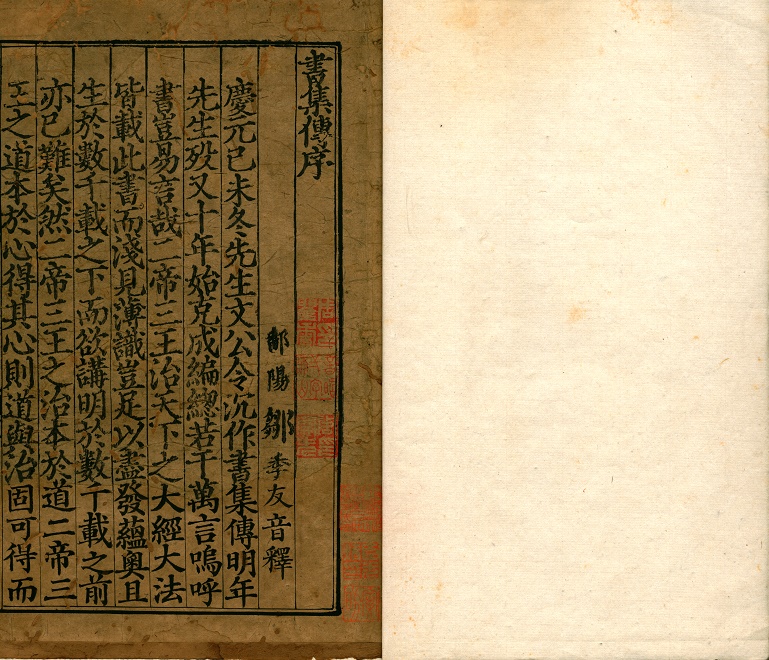 書集傳序
鄱陽鄒季友音釋
慶元己未冬先生文公令沉作書集傳明年
先生歿又十年始克成編總若干萬言嗚呼
書豈易言哉二帝三王治天下之大經大法
皆載此書而淺見薄識豈足以盡發蘊奧且
生於數千載之下而欲講明於數千載之前
亦已難矣然二帝三王之治本於道二帝三
王之道本於心得其心則道與治固可得而